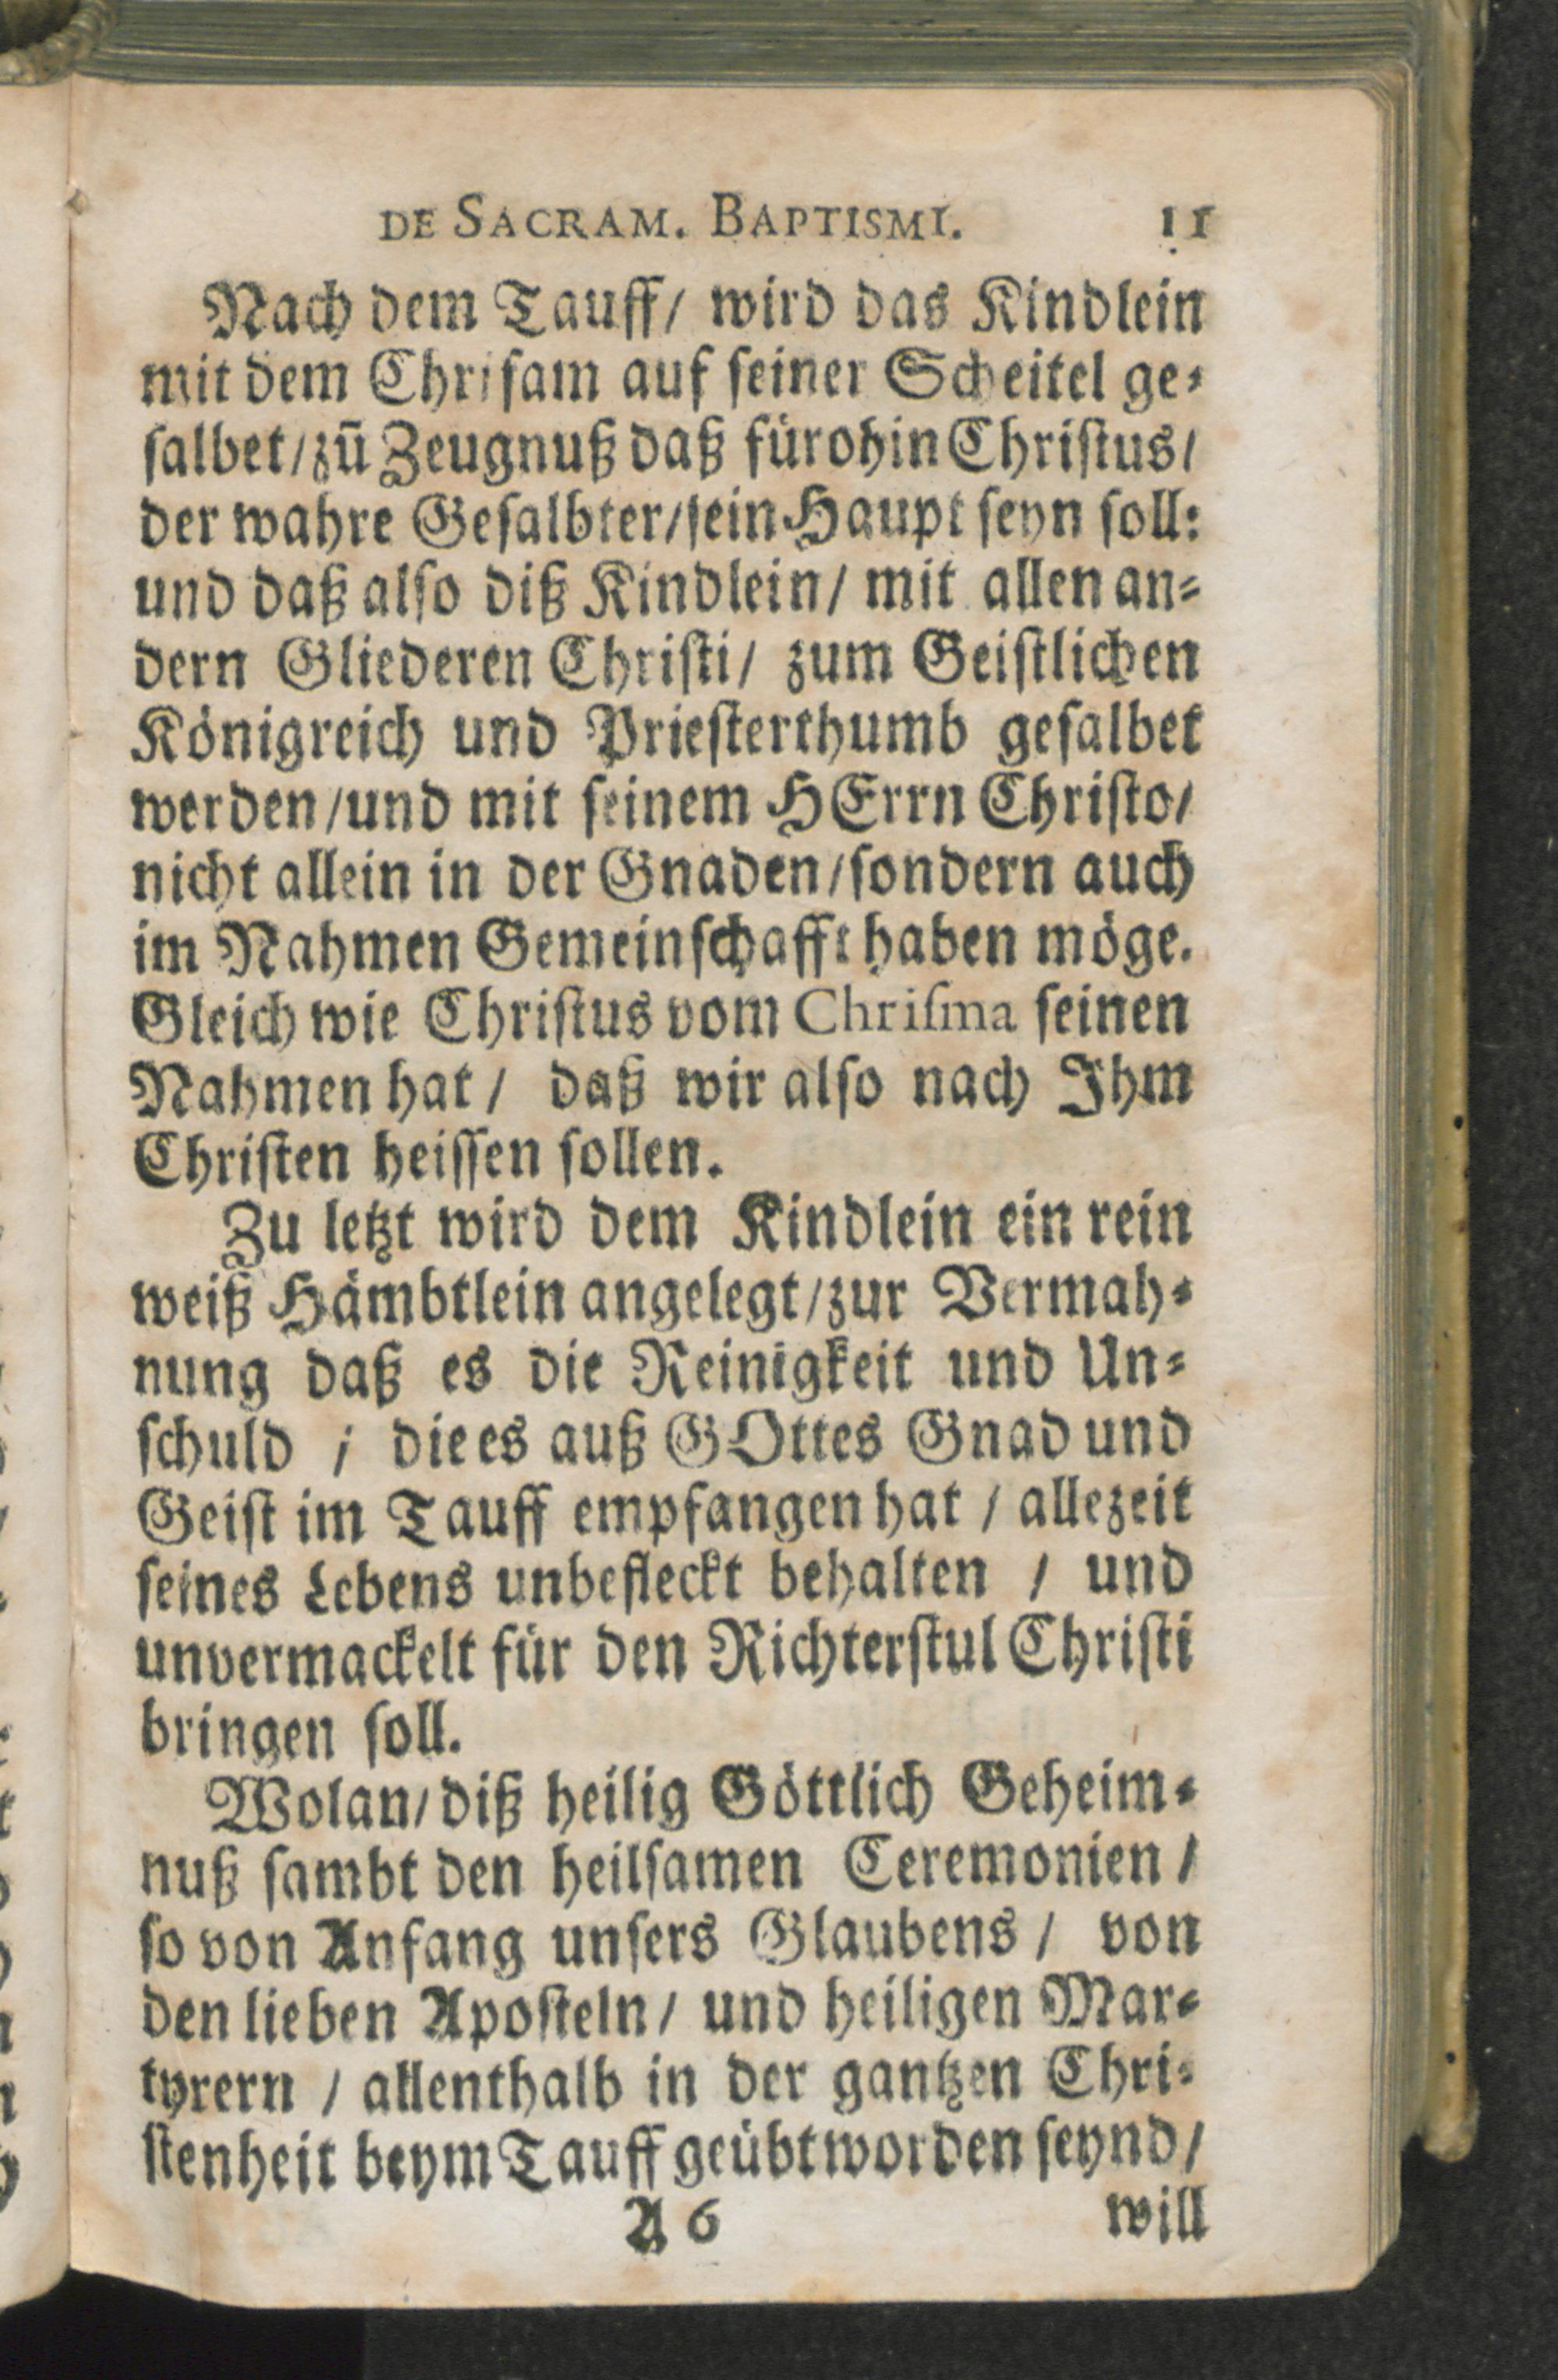 DE SACRAM. BAPTISMI. 11
Nach dem Tauff/ wird das Kindlein
mit dem Chrisam auf seiner Scheitel ge-
salbet/zū Zeugnuß daß fürohin Christus/
der wahre Gesalbter/sein Haupt seyn soll:
und daß also diß Kindlein/ mit allen an-
dern Gliederen Christi/ zum Geistlichen
Königreich und Priesterthumb gesalbet
werden/und mit seinem HErrn Christo/
nicht allein in der Gnaden/sondern auch
im Nahmen Gemeinschafft haben möge.
Gleich wie Christus vom Chrisma seinen
Nahmen hat/ daß wir also nach Ihm
Christen heissen sollen.
Zu letzt wird dem Kindlein ein rein
weiß Hämbtlein angelegt/zur Vermah-
nung daß es die Reinigkeit und Un-
schuld / die es auß GOttes Gnad und
Geist im Tauff empfangen hat / allezeit
seines Lebens unbefleckt behalten / und
unvermackelt für den Richterstul Christi
bringen soll.
Wolan/diß heilig Göttlich Geheim-
nuß sambt den heilsamen Ceremonien /
so von Anfang unsers Glaubens/ von
den lieben Aposteln/ und heiligen Mar-
tyrern / allenthalb in der gantzen Chri-
stenheit beym Tauff geübt worden seynd/
A 6 will